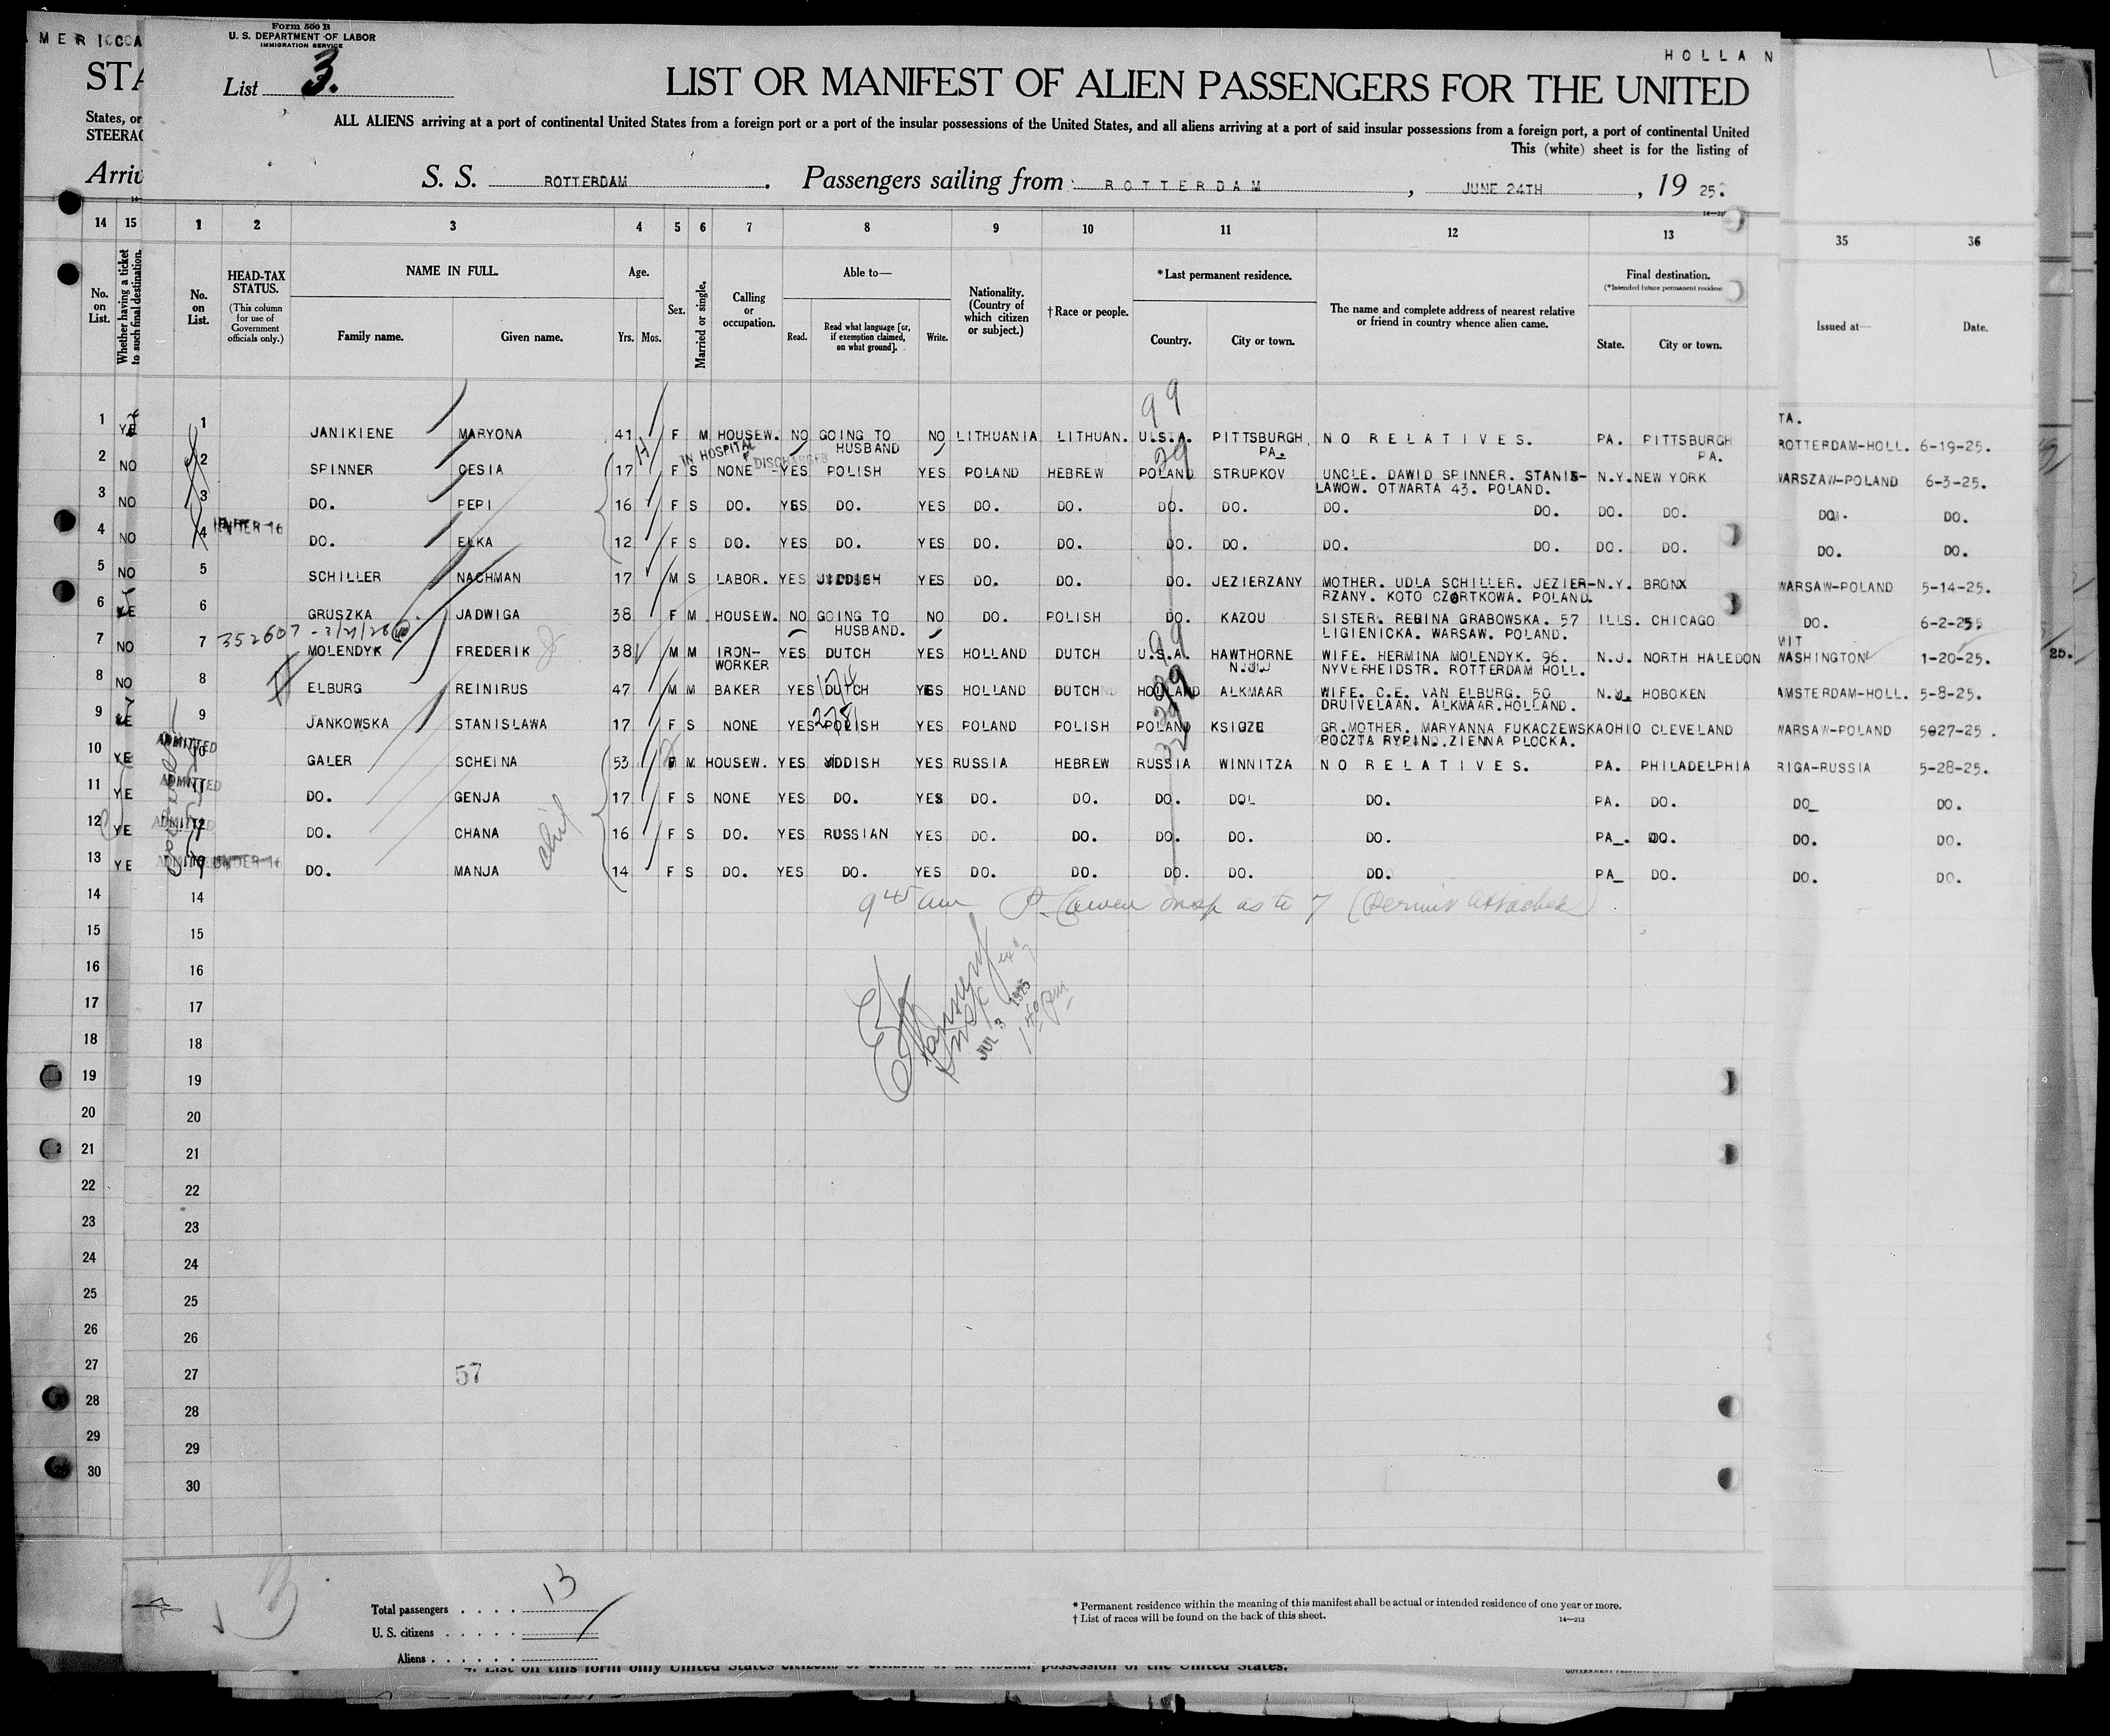 Form 500 B
U. S. DEPARTMENT OF LABOR
IMMIGRATION SERVICE
HOLLAN
List 3.
LIST OR MANIFEST OF ALIEN PASSENGERS FOR THE UNITED
ALL ALIENS arriving at a port of continental United States from a foreign port or a port of the insular possessions of the United States, and all aliens arriving at a port of said insular possessions from a foreign port, a port of continental United
This (white) sheet is for the listing of
S. S. ROTTERDAM. Passengers sailing from ROTTERDAM, JUNE 24TH, 19 25.
1 2 3 4 5 6 7 8 9 10 11 12 13 35 36
No. on List.
HEAD-TAX STATUS.
(This column for use of Government officials only.)
NAME IN FULL.
Family name. Given name.
Age.
Yrs. Mos.
Sex.
Married or single.
Calling or occupation.
Able to—
Read. Read what language [or, if exemption claimed, on what ground]. Write.
Nationality. (Country of which citizen or subject.)
†Race or people.
*Last permanent residence.
Country. City or town.
The name and complete address of nearest relative or friend in country whence alien came.
Final destination.
(*Intended future permanent residence
State. City or town.
Issued at— Date.
14 15
No. on List.
Whether having a ticket to such final destination.
1 JANIKIENE MARYONA 41 F M HOUSEW. NO GOING TO HUSBAND NO LITHUANIA LITHUAN. U.S.A. PITTSBURGH, PA. NO RELATIVES. PA. PITTSBURGH PA. ROTTERDAM-HOLL. 6-19-25.
IN HOSPITAL DISCHARGED
2 SPINNER CESIA 17 F S NONE YES POLISH YES POLAND HEBREW POLAND STRUPKOV UNCLE. DAWID SPINNER. STANIS-LAWOW. OTWARTA 43. POLAND. N.Y. NEW YORK WARSZAW-POLAND 6-3-25.
3 DO. PEPI 16 F S DO. YES DO. YES DO. DO. DO. DO. DO. DO. DO. DO. DO. DO.
4 UNDER-16 DO. ELKA 12 F S DO. YES DO. YES DO. DO. DO. DO. DO. DO. DO. DO. DO. DO.
5 SCHILLER NACHMAN 17 M S LABOR. YES YIDDISH YES DO. DO. DO. JEZIERZANY MOTHER. UDLA SCHILLER. JEZIER-RZANY. KOTO CZORTKOWA. POLAND. N.Y. BRONX WARSAW-POLAND 5-14-25.
6 GRUSZKA JADWIGA 38 F M HOUSEW. NO GOING TO HUSBAND. NO DO. POLISH DO. KAZOU SISTER. REGINA GRABOWSKA. 57 LIGIENICKA. WARSAW. POLAND. ILLS. CHICAGO DO. 6-2-25.
7 352607 - 3/21/28 MOLENDYK FREDERIK 38 M M IRON-WORKER YES DUTCH YES HOLLAND DUTCH U.S.A. HAWTHORNE N.J. WIFE. HERMINA MOLENDYK. 96. NYVERHEIDSTR. ROTTERDAM HOLL. N.J. NORTH HALEDON WASHINGTON 1-20-25.
8 ELBURG REINIRUS 47 M M BAKER YES DUTCH YES HOLLAND DUTCH HOLLAND ALKMAAR WIFE. C.E. VAN ELBURG. 50 DRUIVELAAN. ALKMAAR.HOLLAND. N.J. HOBOKEN AMSTERDAM-HOLL. 5-8-25.
9 JANKOWSKA STANISLAWA 17 F S NONE YES POLISH YES POLAND POLISH POLAND KSIOZE GR.MOTHER. MARYANNA FUKACZEWSKA POCZTA RYPIN. ZIENNA PLOCKA. OHIO CLEVELAND WARSAW-POLAND 5-27-25.
10 ADMITTED GALER SCHEINA 53 F M HOUSEW. YES YIDDISH YES RUSSIA HEBREW RUSSIA WINNITZA NO RELATIVES. PA. PHILADELPHIA RIGA-RUSSIA 5-28-25.
11 ADMITTED DO. GENJA 17 F S NONE YES DO. YES DO. DO. DO. DO. DO. PA. DO. DO. DO.
12 ADMITTED DO. CHANA 16 F S DO. YES RUSSIAN YES DO. DO. DO. DO. DO. PA. DO. DO. DO.
13 ADMITTED UNDER-16 DO. MANJA 14 F S DO. YES DO. YES DO. DO. DO. DO. DO. PA. DO. DO. DO.
14 9 45 am P. Cowen insp as to 7 (Permit attached)
15
16
17
18
JUL 3 1925
1 40 pm
19
20
21
22
23
24
25
26
27 57
28
29
30
Total passengers . . . . 13
U. S. citizens . . . . .
Aliens . . . . . .
* Permanent residence within the meaning of this manifest shall be actual or intended residence of one year or more.
† List of races will be found on the back of this sheet.
14—213